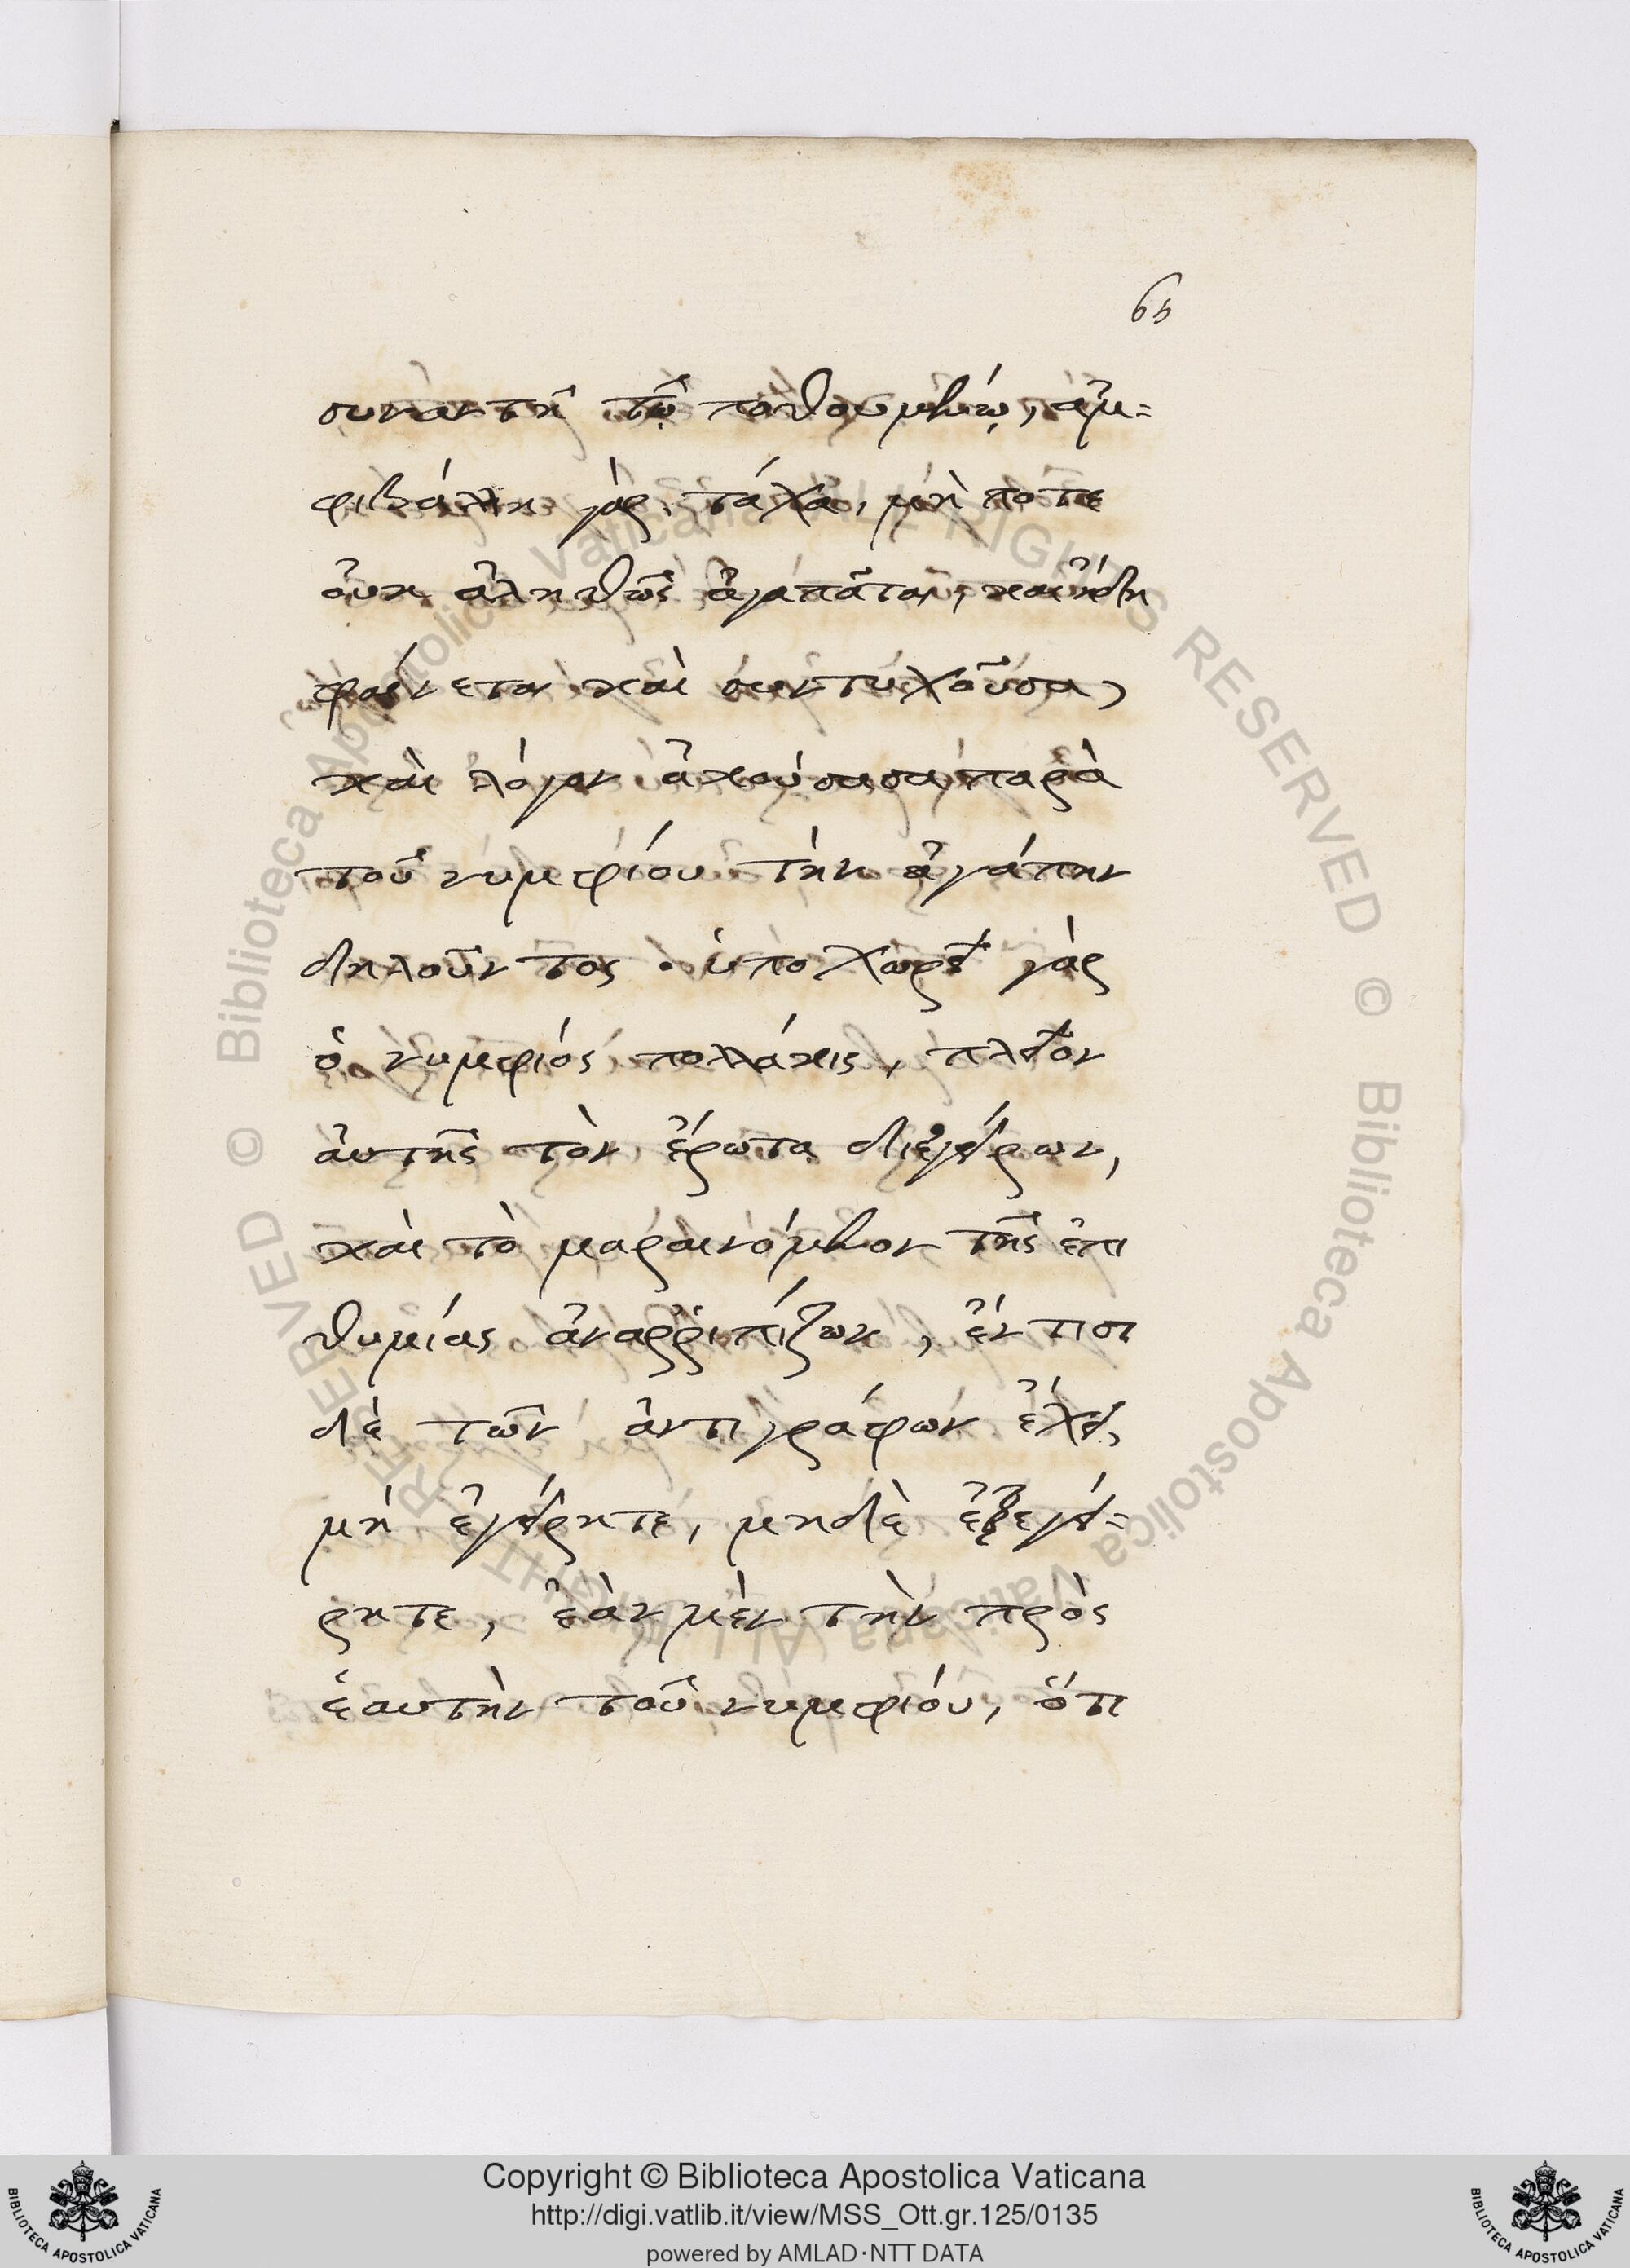 65
συναντῆ τῷ ποθουμένῳ, ἀμ=
φιβάλλη γὰρ, τάχα, μὴ ποτε
οὐκ ἀληθῶς ἀγαπᾶται, καὶ ἤδη
φαίνεται καὶ συντυχοῦσα,
καὶ λόγον ἀκούσασα παρὰ
τοῦ νυμφίου τὴν ἀγάπην
δηλοῦντος . ὑποχωρεῖ γὰρ
ὁ νυμφιός πολλάκις, πλεῖον
ἀυτῆς τὸν ἔρωτα διεγείρων,
καὶ τὸ μαραινόμενον τῆς ἐπι
θυμίας ἀναῤῥιπίζων, ἔν τισι
δὲ τῶν ἀντιγράφων ἔχει,
μὴ ἐγείρητε, μηδὲ ἐξεγεί=
ρητε, ἐὰν μὲν τὴν πρὸς
ἑαυτὴν τοῦ νυμφιόυ, ὅτι
© Biblioteca Apostolica Vaticana ALL RIGHTS RESERVED © Biblioteca Apostolica Vaticana ALL RIGHTS RESERVED
Copyright © Biblioteca Apostolica Vaticana
http://digi.vatlib.it/view/MSS_Ott.gr.125/0135
powered by AMLAD·NTT DATA
BIBLIOTECA APOSTOLICA VATICANA
BIBLIOTECA APOSTOLICA VATICANA